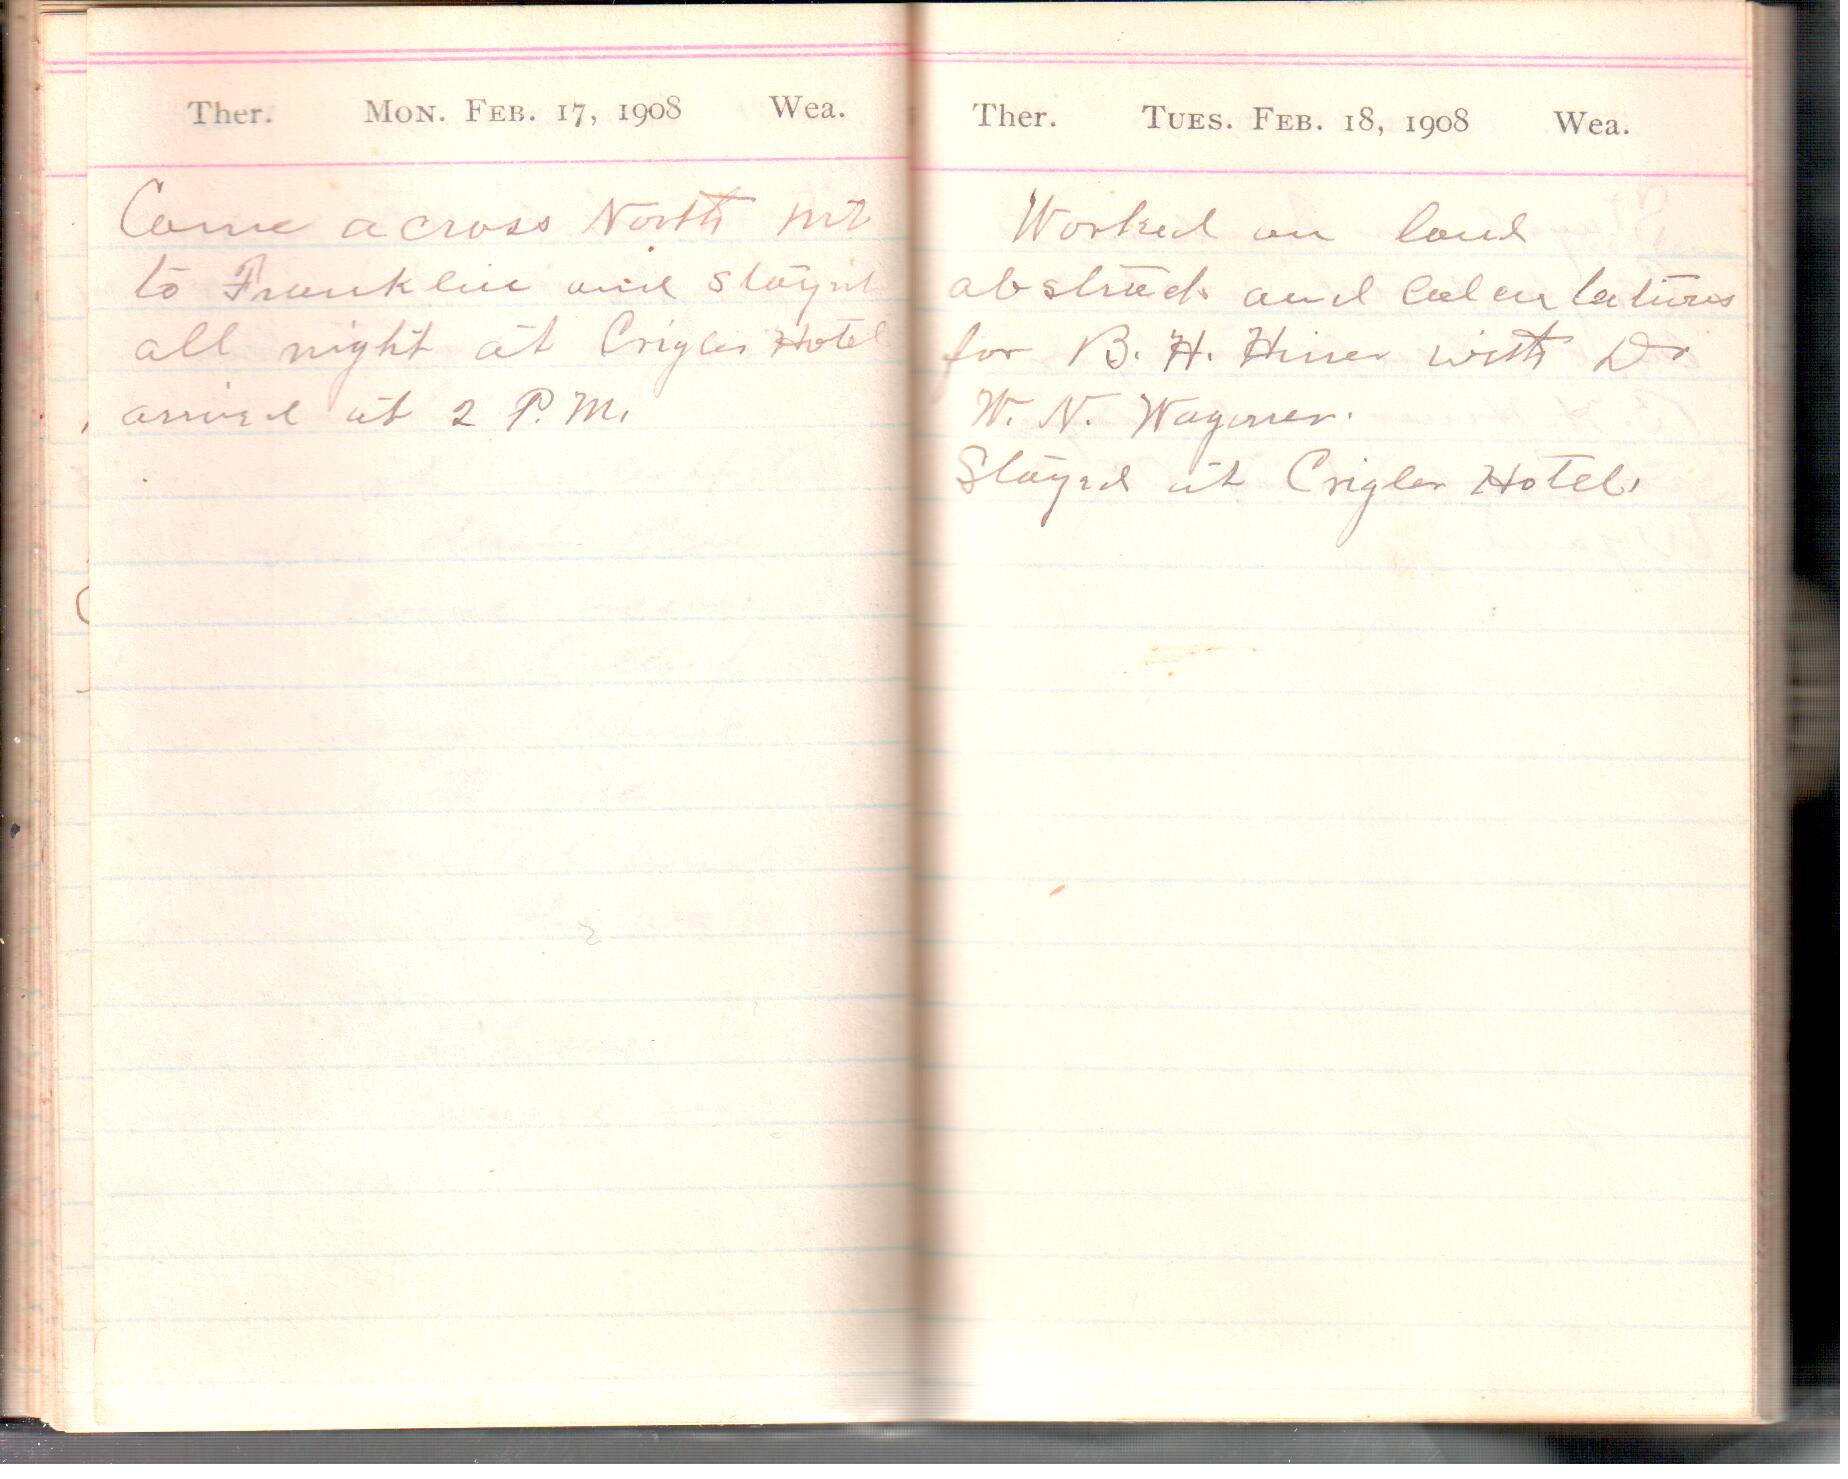 Ther. Mon. Feb. 17, 1908 Wea.
Came across North Mt
to Franklin and stayed
all night at Crigler Hotel
arrived at 2 P.M.
Ther. Tues. Feb. 18, 1908 Wea.
Worked on land
abstracts and calculations
for B. H. Hiner with Dr
W. N. Wagoner.
Stayed at Crigler Hotel.